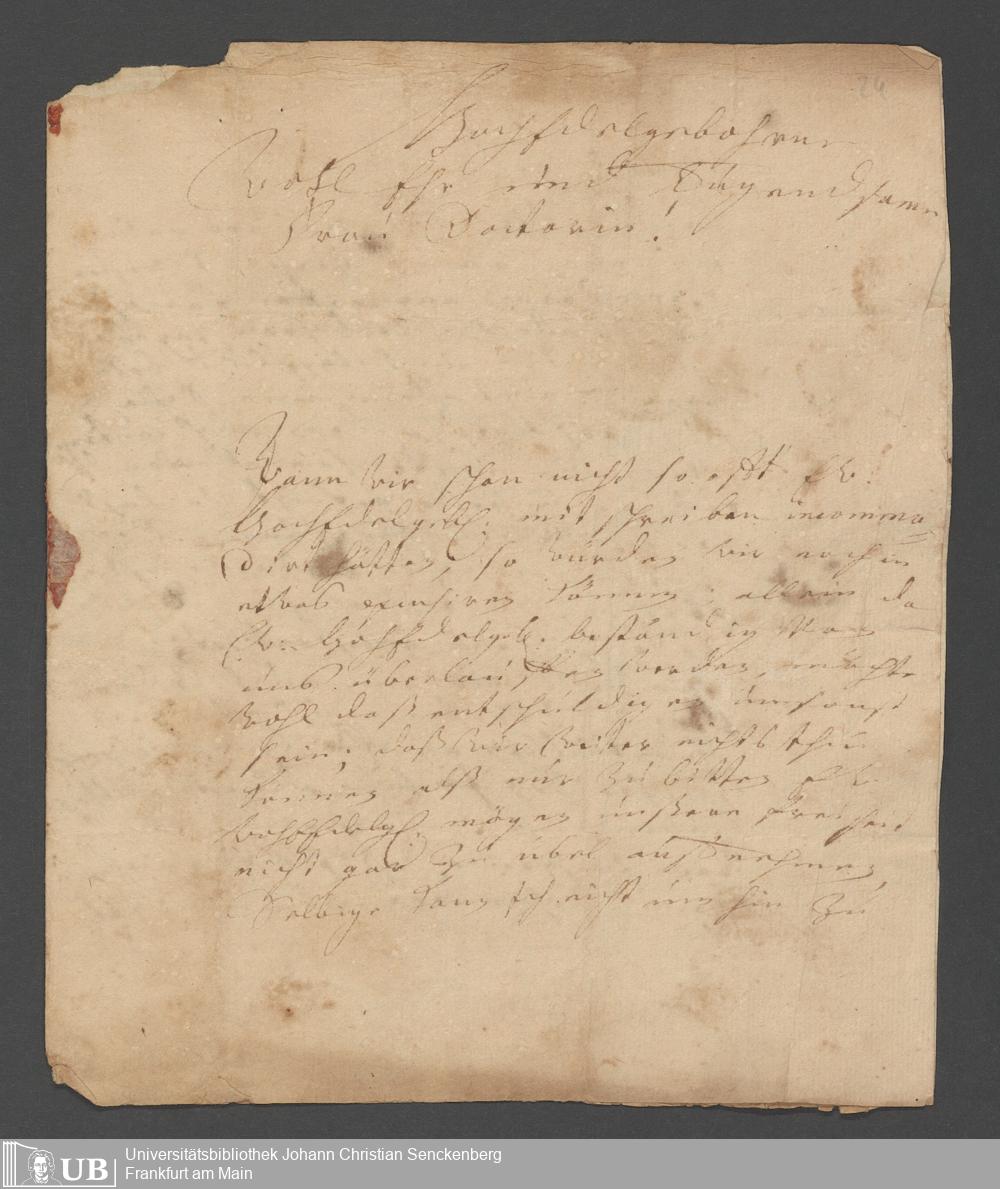 24
HochEdelgebohrne
Wohl Ehr und Tugendsame
Frau Doctorin!
Wann wir schon nicht so offt Ew.
HochEdelgeb. mit schreiben incommo=
dirt hätten, so würden wir noch in
etwas excusiren können; allein da
Ew. HochEdelgeb. beständig von
uns überlauffen werden, möchte
wohl daß entschuldigen umsonst
sein; daß wir weiter nichts thun
können alß nur zu bitten Ew.
HochEdelg. mögen unßere freiheit
nicht gar zu übel auffnehmen,
Selbige kann ich nicht um hin zu
UB
Universitätsbibliothek Johann Christian Senckenberg
Frankfurt am Main